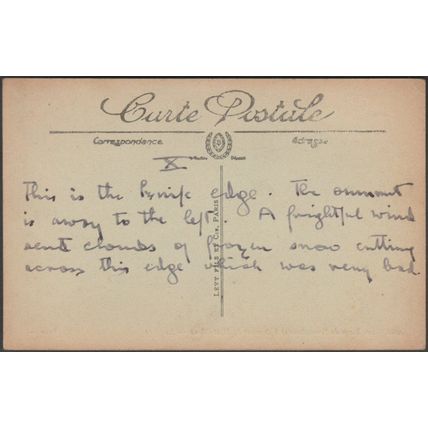 Carte Postale
Correspondance
Adresse
Marque Déposée
X
This is the Knife edge. The summit
is away to the left. A frightful wind
sent clouds of frozen snow cutting
across this edge which was very bad.
LEVY FILS ET CIE, PARIS